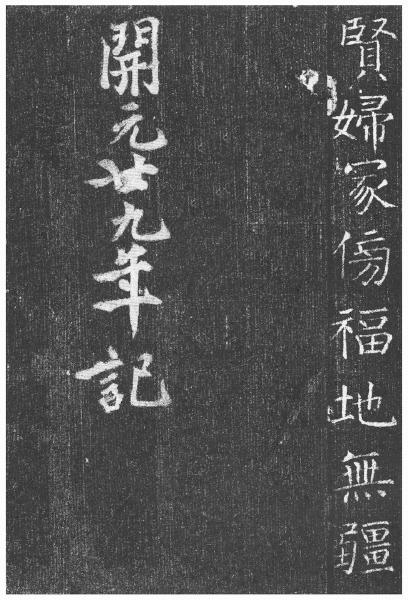 賢婦冢傍福地無疆
開元廿九年記